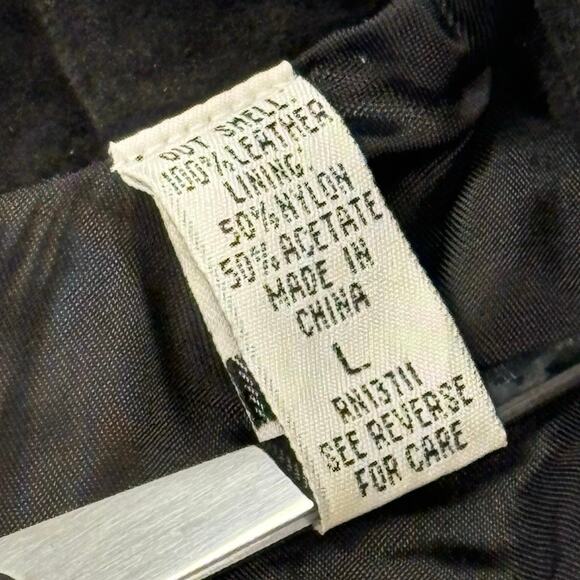 OUT SHELL:
100% LEATHER
LINING
50% NYLON
50% ACETATE
MADE IN
CHINA
L
RN13711
SEE REVERSE
FOR CARE